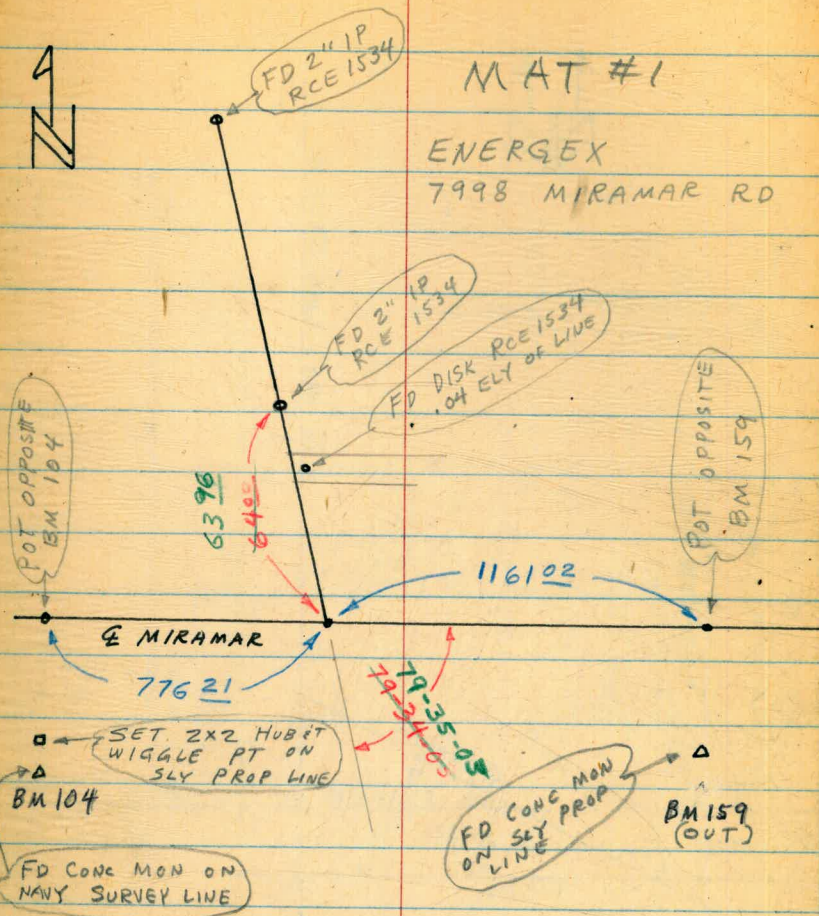 N
FD 2" IP
RCE 1534
MAT #1
ENERGEX
7998 MIRAMAR RD
FD 2" IP
RCE 1534
FD DISK RCE 1534
.04 ELY OF LINE
POT OPPOSITE
BM 104
POT OPPOSITE
BM 159
63 96
64 00
1161 02
℄ MIRAMAR
776 21
79-35-05
79-34-05
SET 2X2 HUB &T
WIGGLE PT ON
SLY PROP LINE
BM 104
FD CONC MON
ON SLY PROP
LINE
BM 159
(OUT)
FD CONC MON ON
NAVY SURVEY LINE